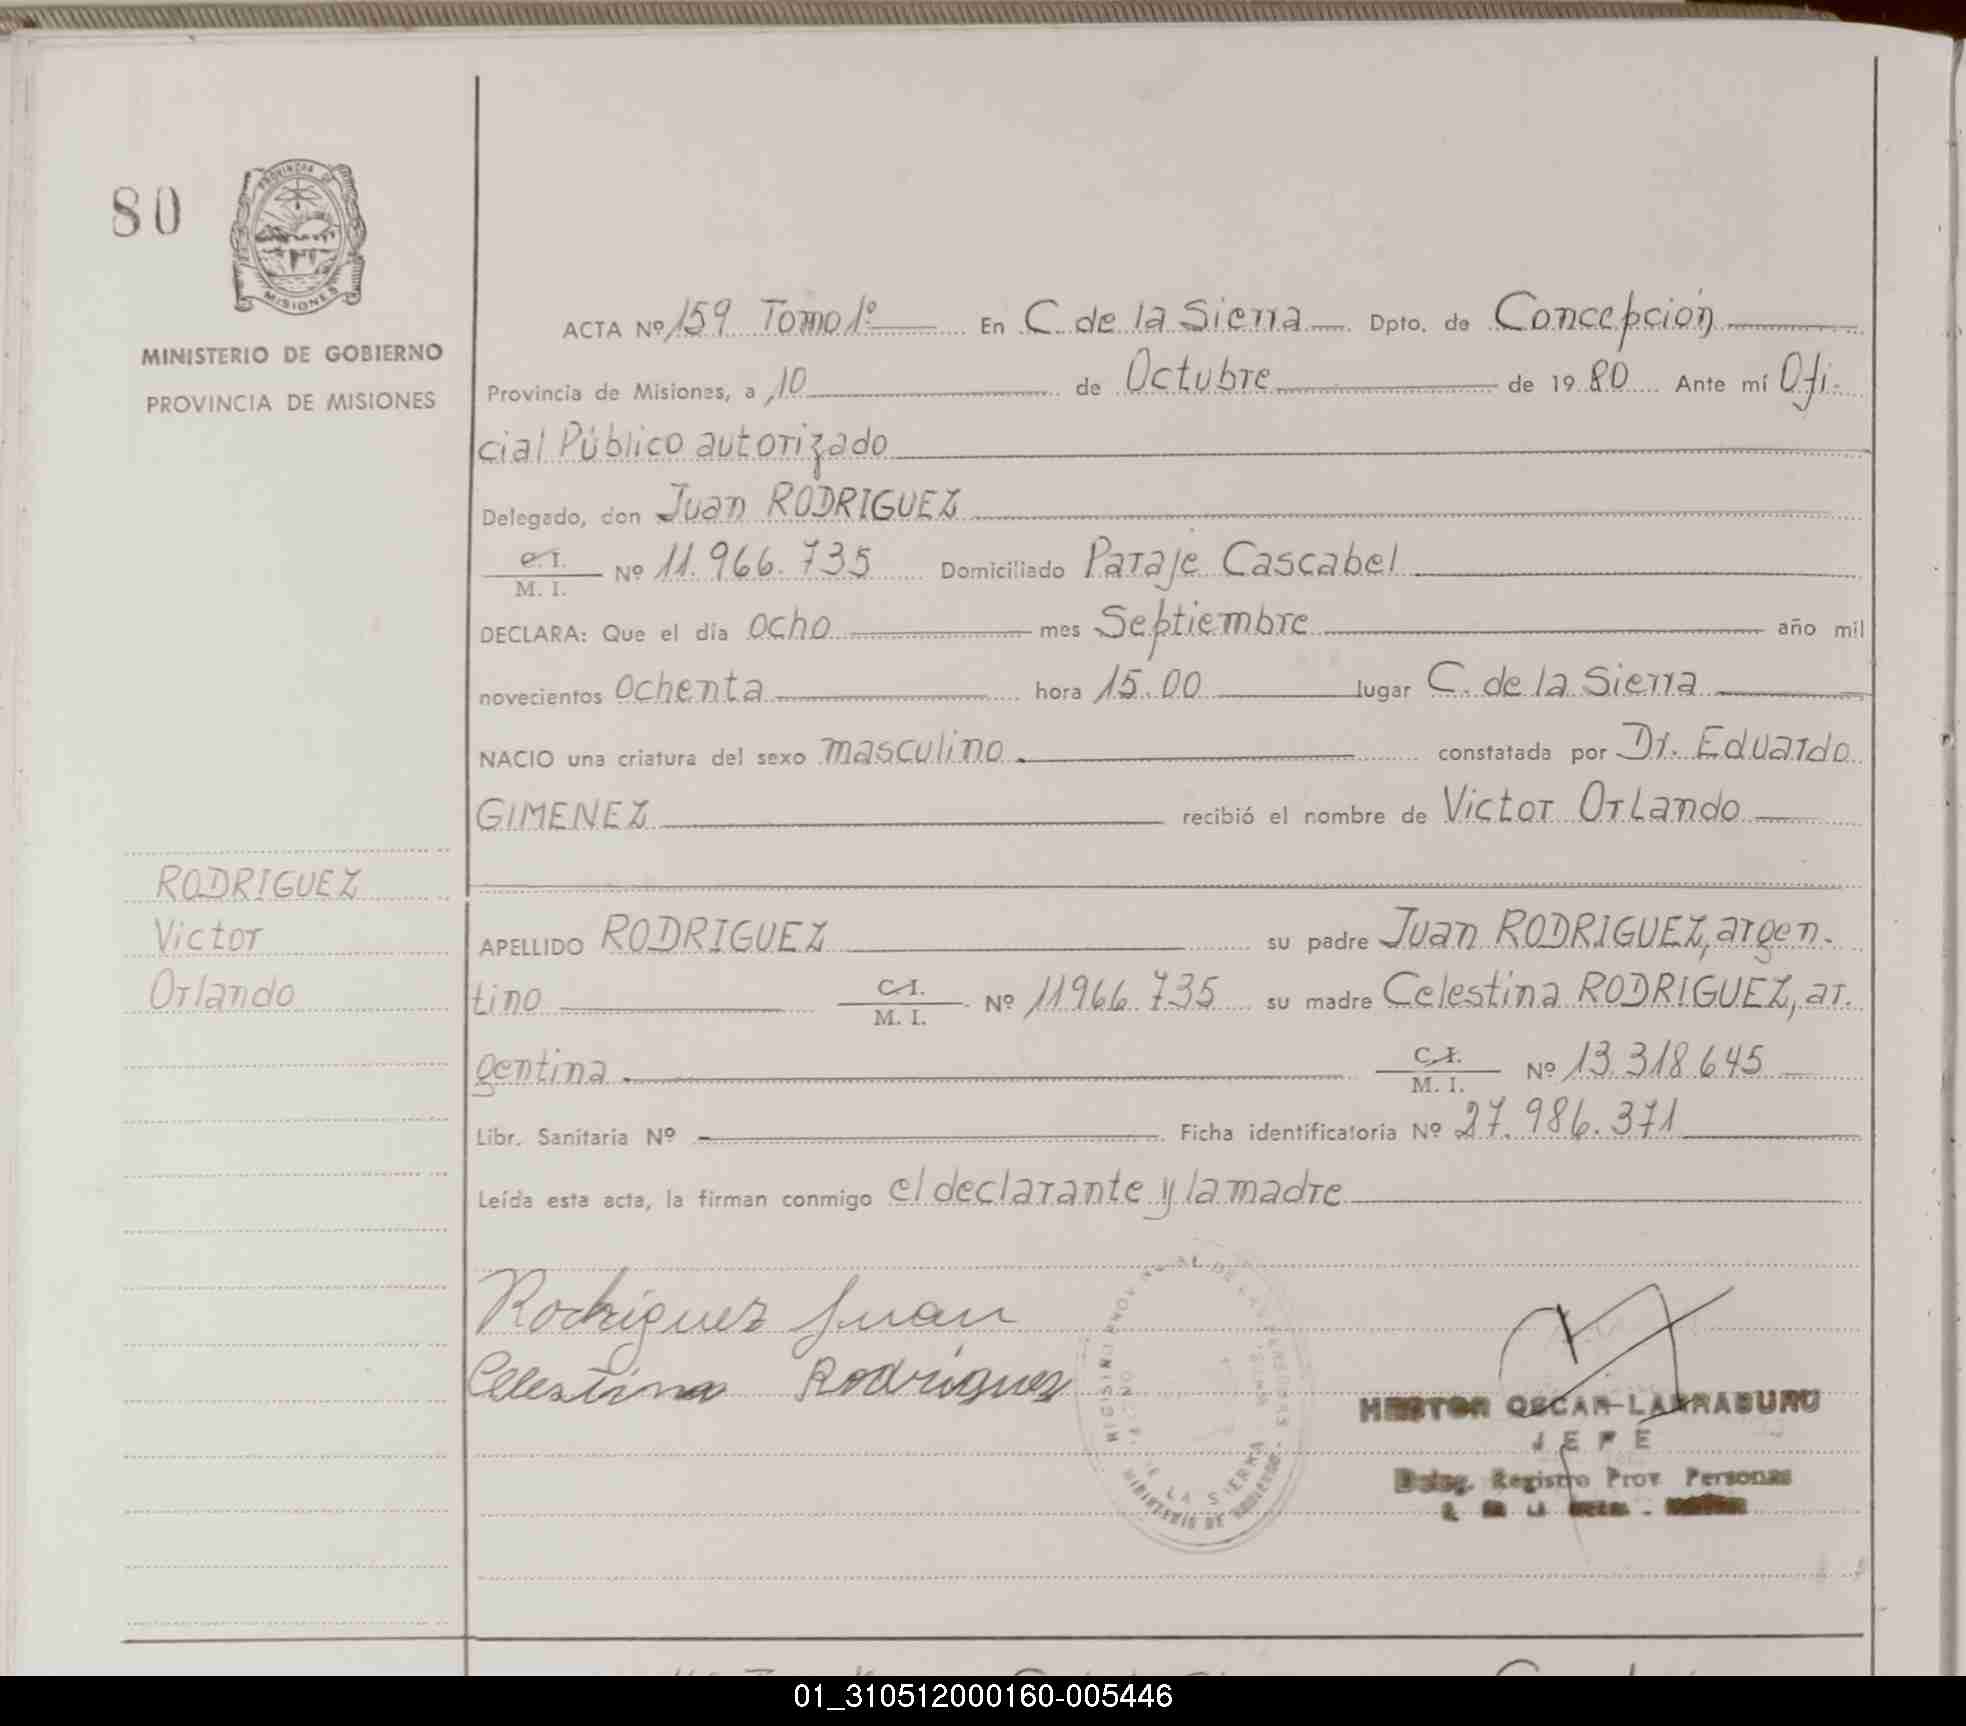 80
PROVINCIA DE
MISIONES
MINISTERIO DE GOBIERNO
PROVINCIA DE MISIONES
ACTA Nº 159 Tomo 1º En C. de la Sierra Dpto. de Concepción
Provincia de Misiones, a 10 de Octubre de 1980 Ante mí Ofi-
cial Público autorizado
Delegado, don Juan RODRIGUEZ
C. I. / M. I. Nº 11.966.735 Domiciliado Paraje Cascabel
DECLARA: Que el día ocho mes Septiembre año mil
novecientos ochenta hora 15.00 lugar C. de la Sierra
NACIO una criatura del sexo masculino constatada por Dr. Eduardo
GIMENEZ recibió el nombre de Victor Orlando
RODRIGUEZ
Victor
Orlando
APELLIDO RODRIGUEZ su padre Juan RODRIGUEZ, argen-
tino C. I. / M. I. Nº 11966.735 su madre Celestina RODRIGUEZ, ar-
gentina C. I. / M. I. Nº 13.318.645
Libr. Sanitaria Nº Ficha identificatoria Nº 27.986.371
Leída esta acta, la firman conmigo el declarante y la madre
Rodriguez Juan
Celestina Rodriguez
DE LA SIERRA
MINISTERIO DE GOBIERNO
OSCAR LARRABURU
JEFE
Deleg. Registro Prov. Personas
01_310512000160-005446